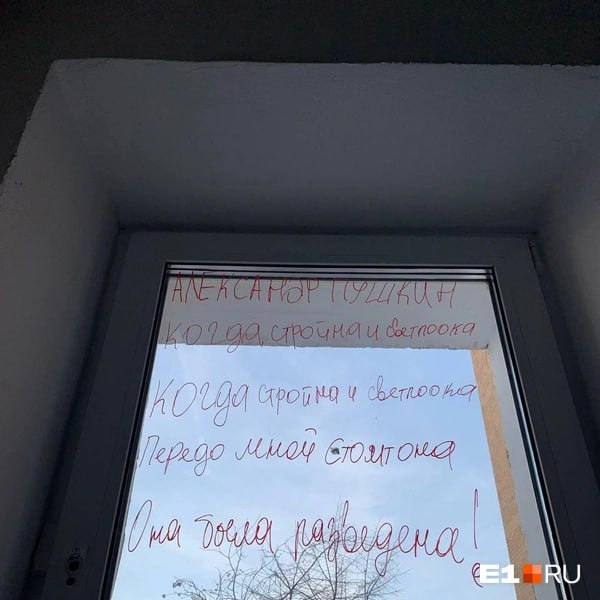 АЛЕКСАНДР ПУШКИН
КОГДА стройна и светлоока
КОГДА стройна и светлоока
Передо мной стоит она
Она была разведена!
E1.RU